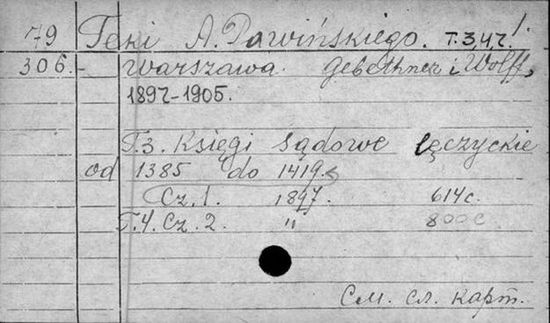 79 Teki A. Pawińskiego. T.3,4,7.
306.- Warszawa. Gebethner i Wolff,
1897-1905.
T.3. Księgi sądowe łęczyckie
od 1385 do 1419.
Cz.1. 1897. 614c.
T.4. Cz.2. " 800c
См. сл. карт.